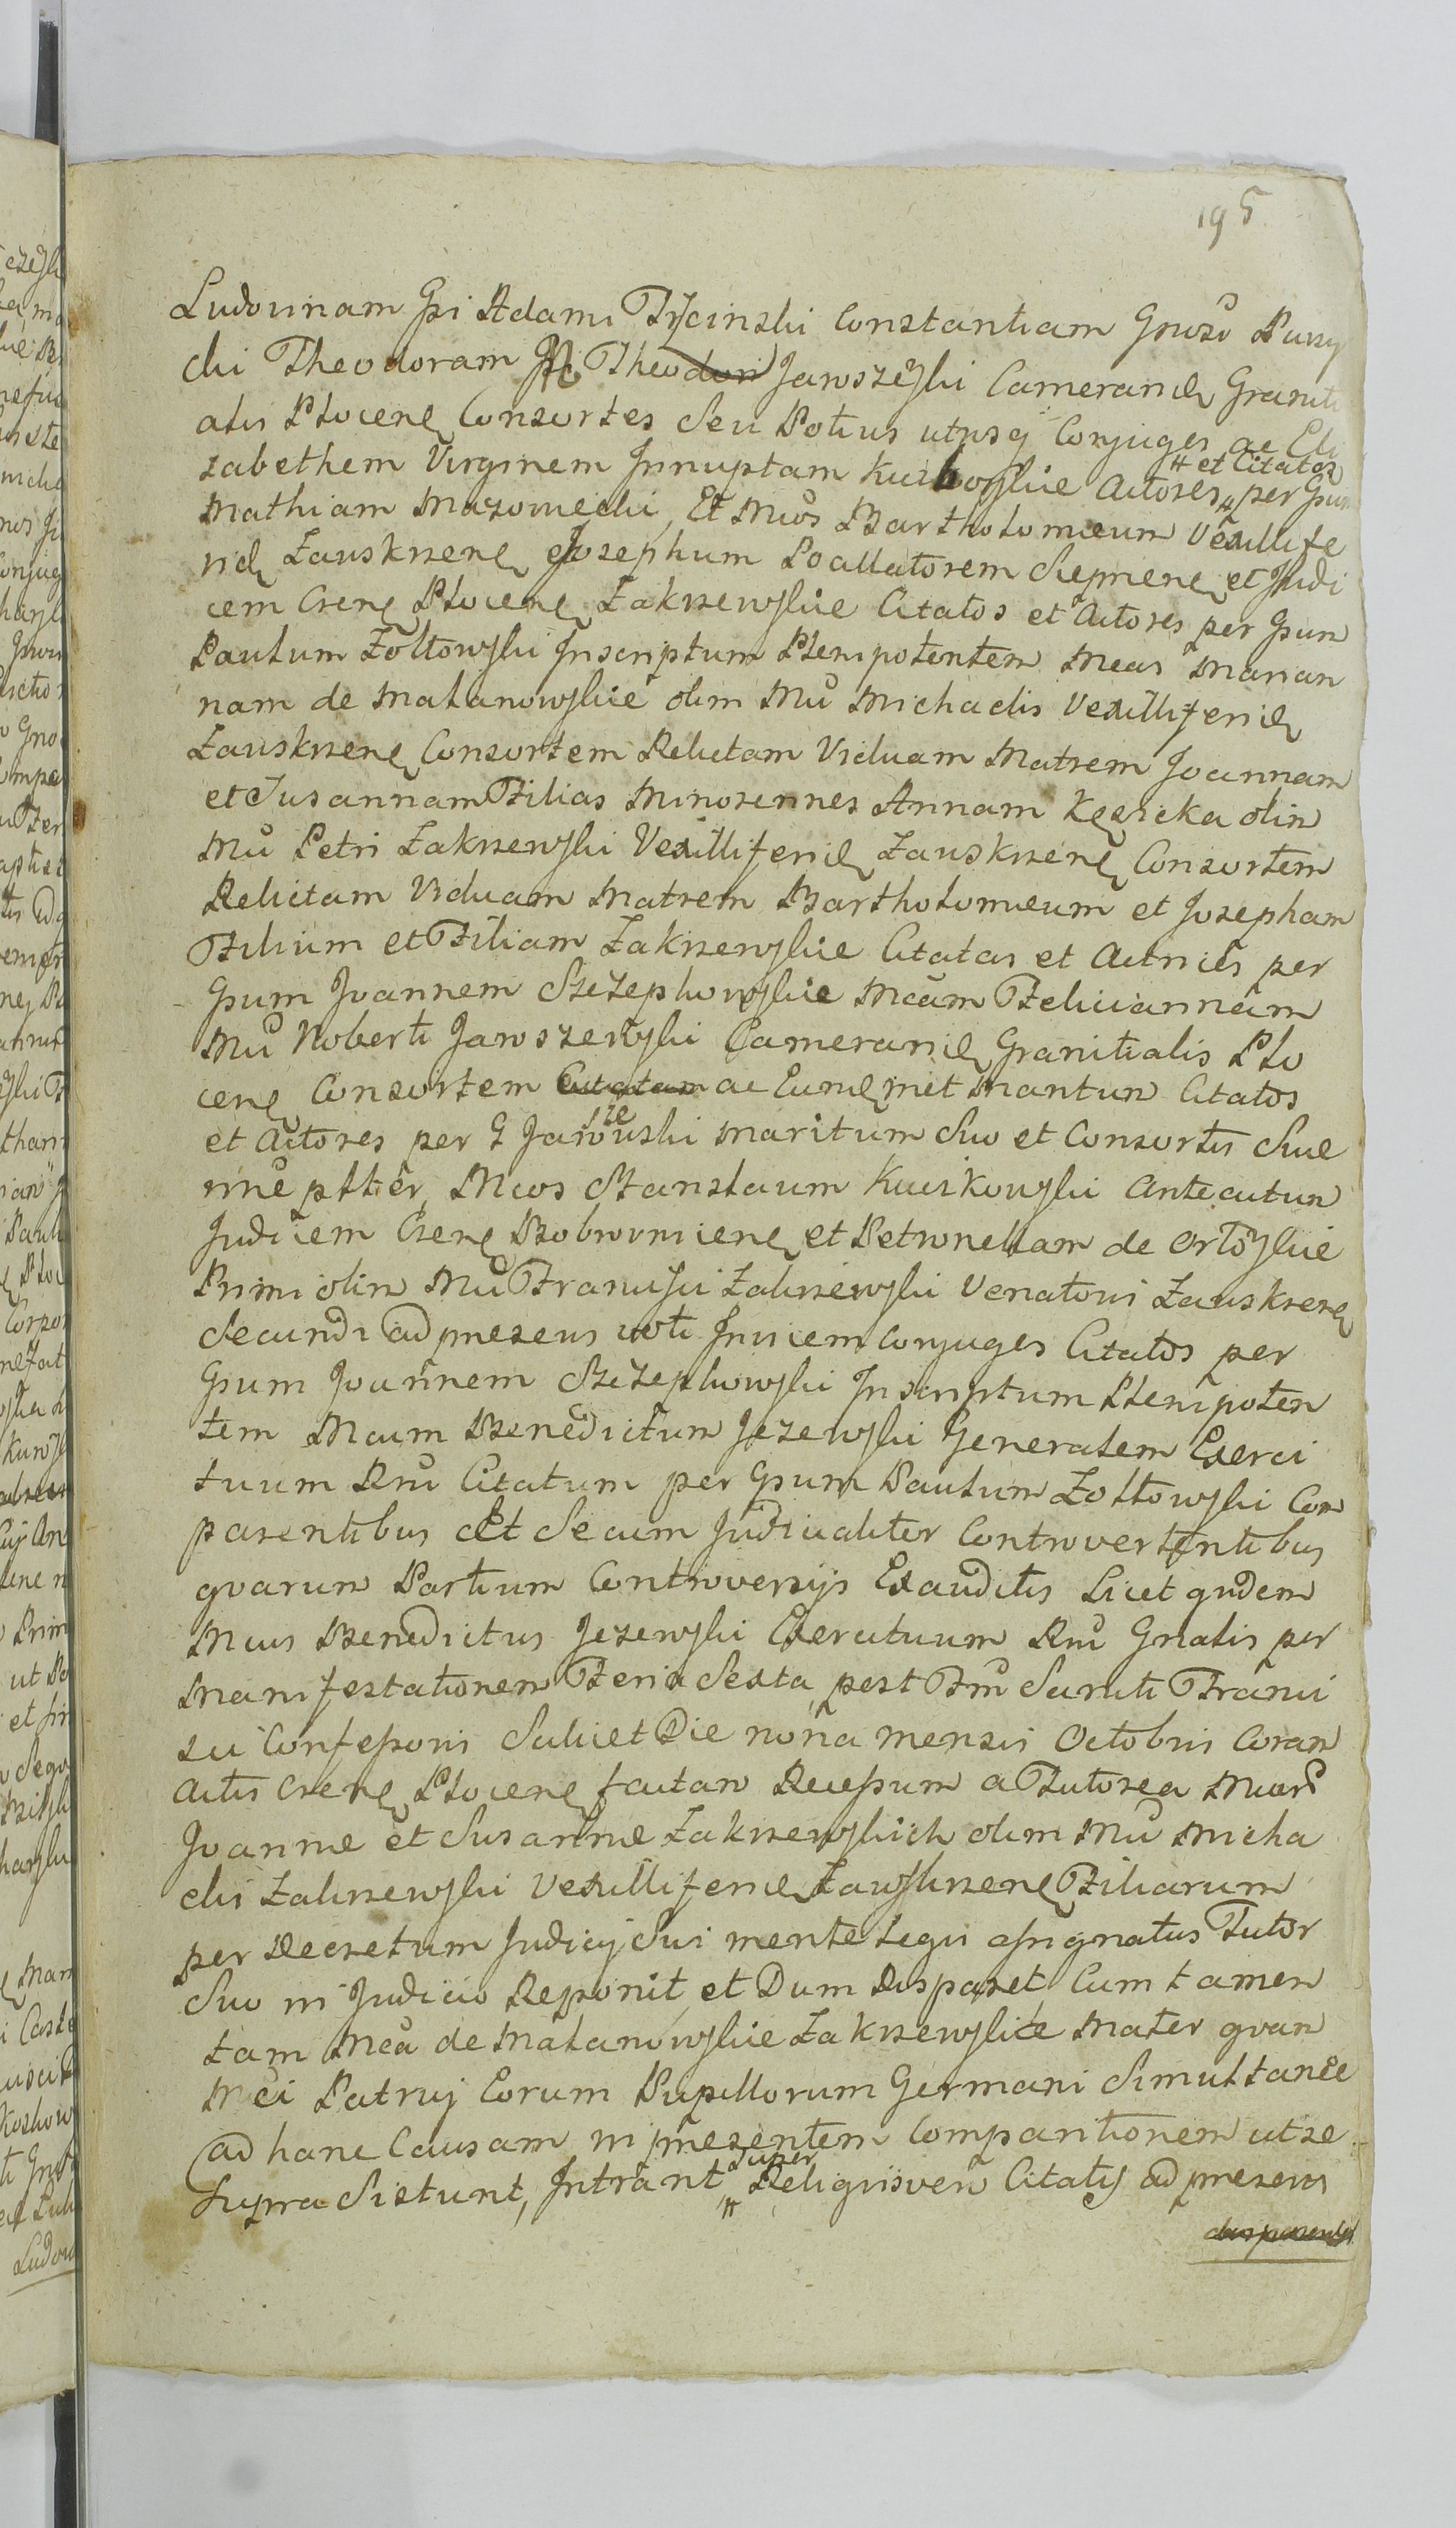 195
Ludovinam Gsi Adami Trzcinski Constantiam Gnoso
cki Theodoram Theodori Jaroszeski Camerarii Graniti
alis Plocens Consortes Seu Potius utriusq Conjuges ac Eli
zabetham Virginem Innuptam Actores per Gsum
et Citatos
Mathiam Mazowiecki, Et Mcos Bartholomeum Vexillife
rum Zauskrsens Josephum Pocillatorem Sieprcens et Judi
cem Csens Plocens Zakrzewskie Citatos et Actores per Gsum
Paulum Zoltowski Inscriptum Plenipotentem Mcas Marian
nam de Malanowskie olim Mci Michaelis Vexilliferi
Zauskrsens Consortem Relictam Viduam Matrem Joannam
et Susannam Filias Minorennes Annam Kezicka olim
Mci Petri Zakrzewski Vexilliferi Zauskrsens Consortem
Relictam Viduam Matrem Bartholomeum et Josepham
Filium et Filiam Zakrzewskie Citatas et Actrices per
Gsum Joannem Szczepkowskie Mcam Feliciannam
Mci Noberti Jaroszewski Camerarii Granitialis Plo
cens Consortem Citatam ac Eundemmet Maritum Citatos
et Actores per G Jarouski Maritum Suo et Consortis Sue
ze
nne ptter, Mcos Stanslaum Kuczkowski Anteactum
Judicem Csens Bobrovnicens et Petronellam de Orloskie
Primi olim Mci Francisci Zakrzewski Venatoris Zauskrsens
Secundi ad presens voti Invicem Conjuges Citatos per
Gsum Joannem Szczepkowski Inscriptum Plenipoten
tem Mcum Benedictum Jezewski Generalem Exerci
tuum Rni Citatum per Gsum Paulum Zoltowski Com
parentibus Et Secum Judicialiter Controvertentibus
qvarum Partium Controversijs Exauditis Licet qvidem
Mcus Benedictus Jezewski Exercituum Rni Gnalis per
Manifestationem Feria Sexta post Ftm Sancti Franci
sci Confessoris Scilicet Die nona mensis Octobris Coram
Actis Csens Plocens factam Recessum a Tutorea Mcarum
Joanne et Susanne Zakrzewskich olim Mci Micha
elis Zakrzewski Vexilliferi Zawskrsens Filiarum
per Decretum Judicij Sui mente Legis assignatus Tutor
Suo in Judicio Reponit, et Dum Disparet, Cum tamen
tam Mca de Malanowskie Zakrzewskie Mater qvam
Mci Patruj Eorum Pupillorum Germani Simultanee
ad hanc Causam in presentem Comparitionem ut se
Supra Sistunt, Intrant Reliqvis vero Citatis ad presens
super
disparentes